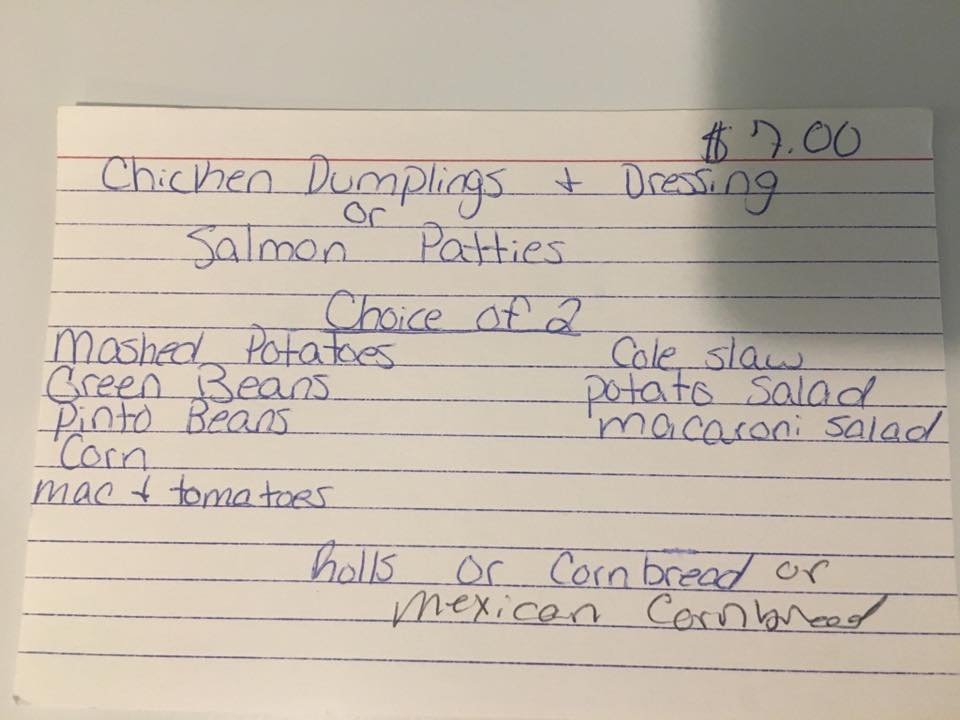 $7.00
Chicken Dumplings + Dressing
or
Salmon Patties
Choice of 2
Mashed Potatoes
Green Beans
Pinto Beans
Corn
mac + tomatoes
Cole slaw
potato salad
macaroni salad
Rolls or Cornbread or
Mexican Cornbread